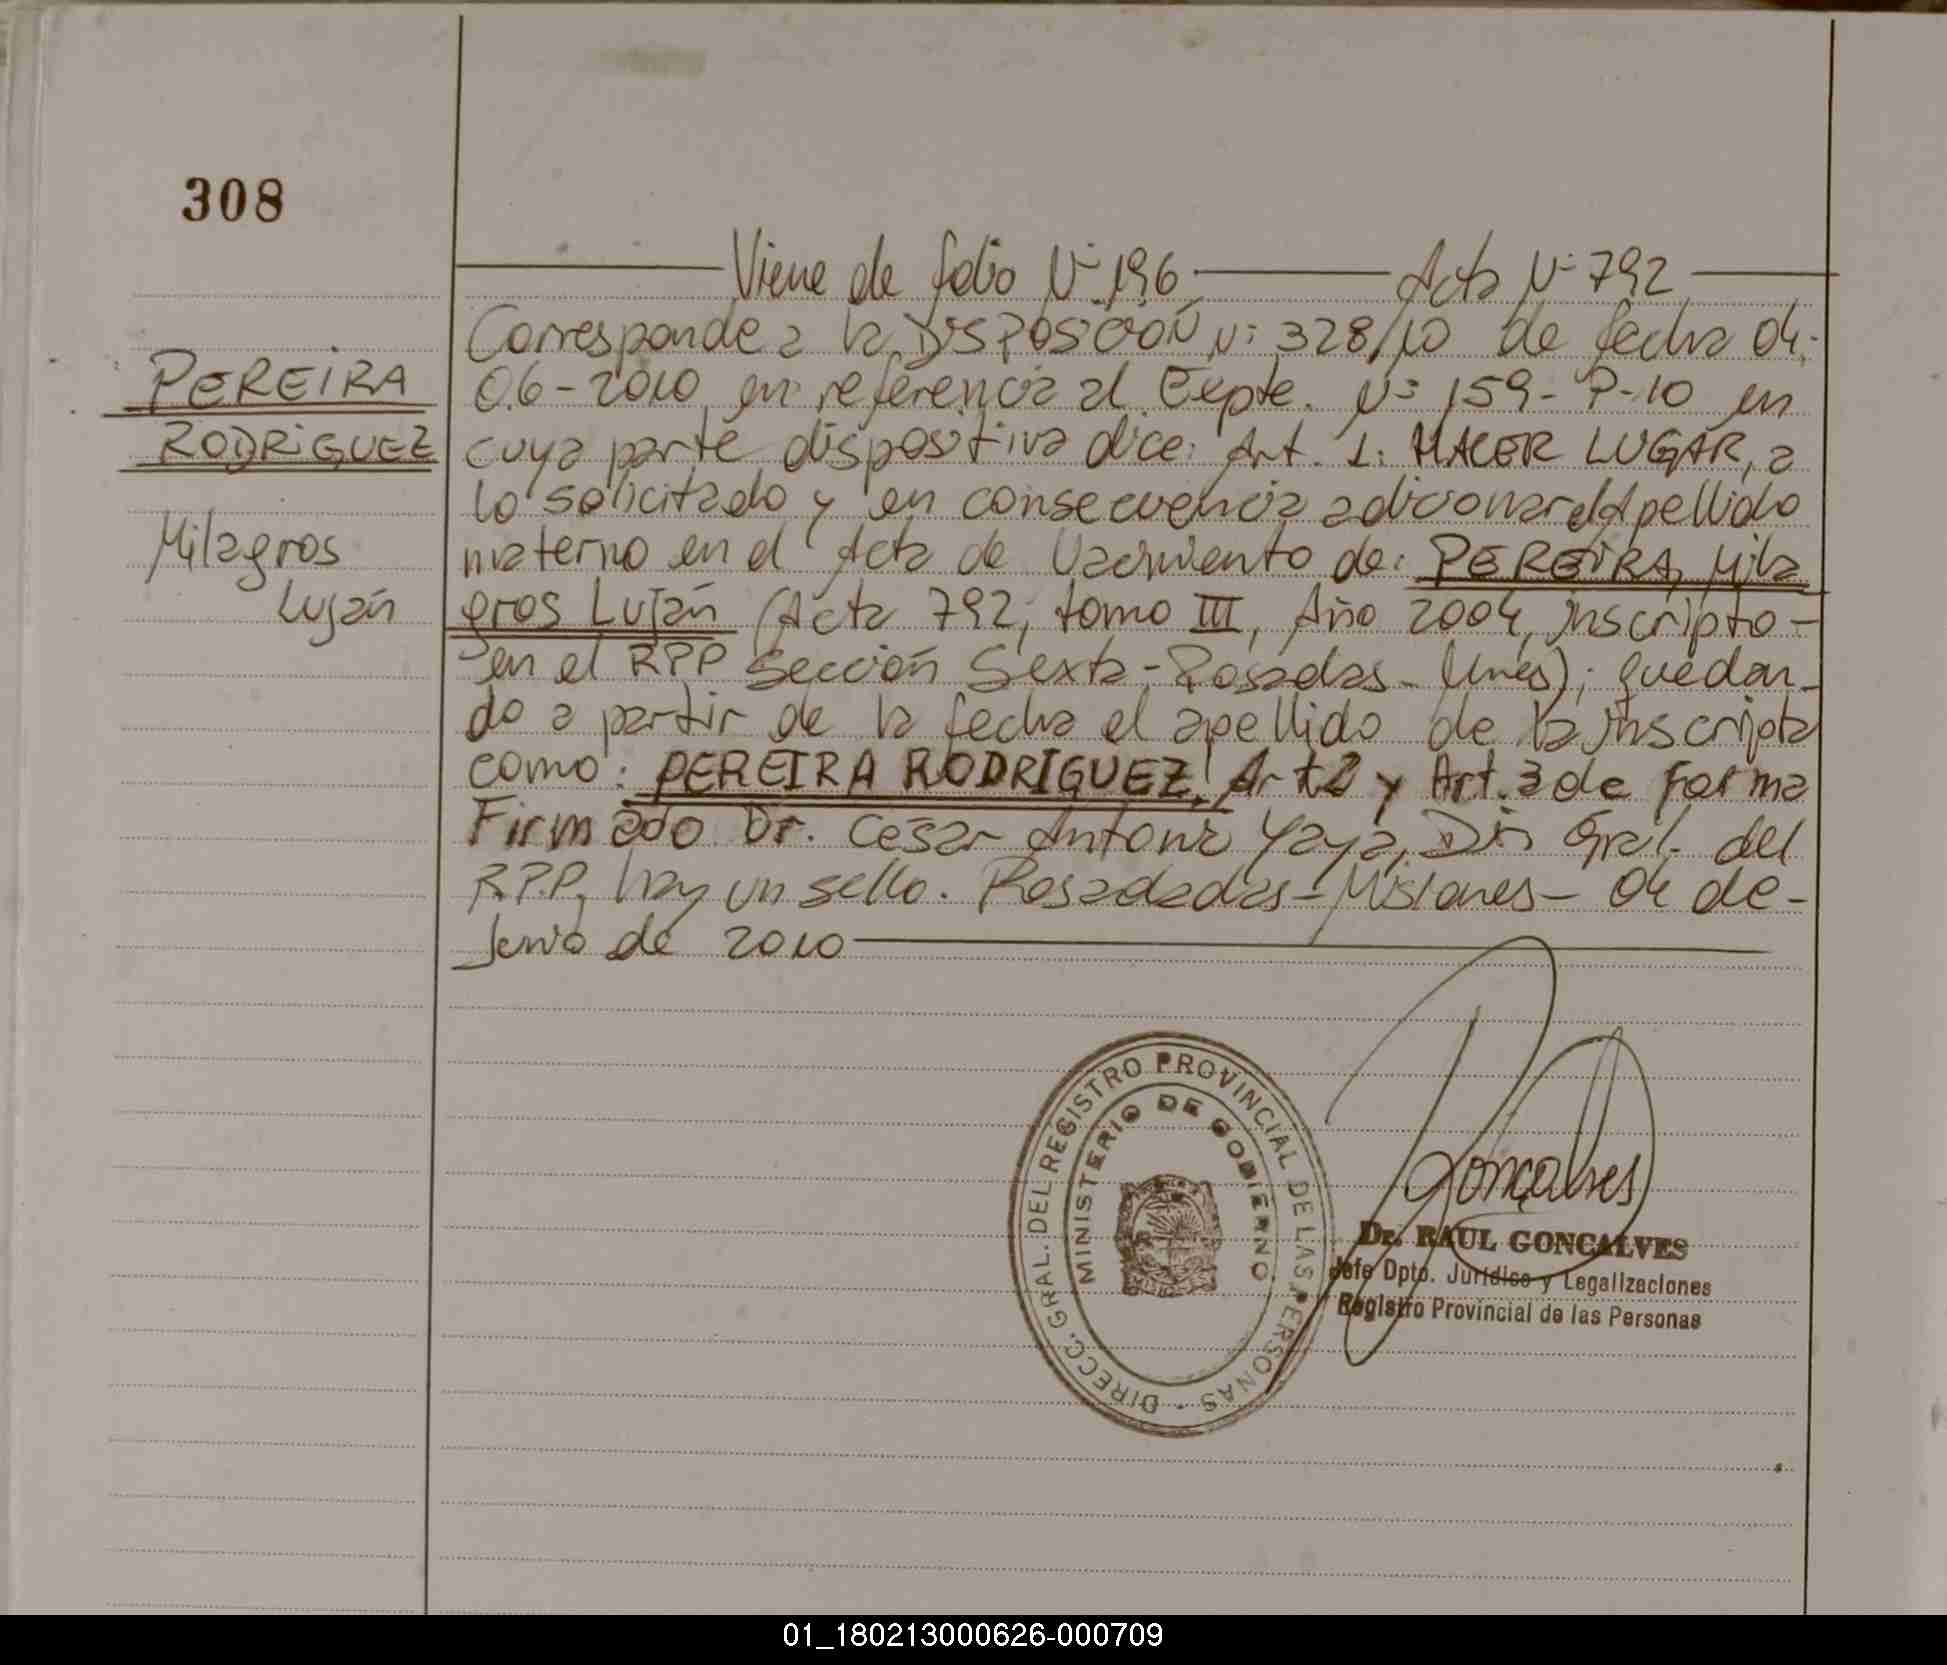 308
Viene de folio Nº 196 Acta Nº 792
PEREIRA
RODRIGUEZ
Milagros
Luján
Corresponde a la DISPOSICION Nº 328/10 de fecha 04-
06-2010, en referencia al Expte. Nº 159-P-10 en
cuya parte dispositiva dice: Art. 1: HACER LUGAR, a
lo solicitado y en consecuencia adicionar el Apellido
materno en el Acta de Nacimiento de: PEREIRA, Mila
gros Luján (Acta 792, tomo III, Año 2004, inscripto-
en el RPP Sección Sexta-Posadas-Mnes); quedan-
do a partir de la fecha el apellido de la inscripta
como: PEREIRA RODRIGUEZ. Art 2 y Art. 3 de forma
Firmado Dr. Cesar Antonio Yaya, Dir Gral. del
R.P.P, hay un sello. Posadadas-Misiones- 04 de-
Junio de 2010
DIRECC. GRAL. DEL REGISTRO PROVINCIAL DE LAS PERSONAS
MINISTERIO DE GOBIERNO
Gonçalves
Dr. RAUL GONCALVES
Jefe Dpto. Jurídico y Legalizaciones
Registro Provincial de las Personas
01_180213000626-000709